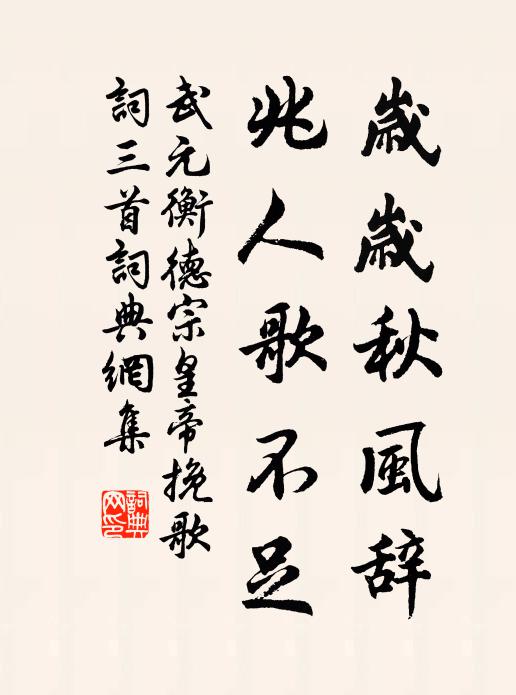 歲歲秋風辞
兆人歌不足
武元衡德宗皇帝挽歌
詞三首詞典網集
詞典网印